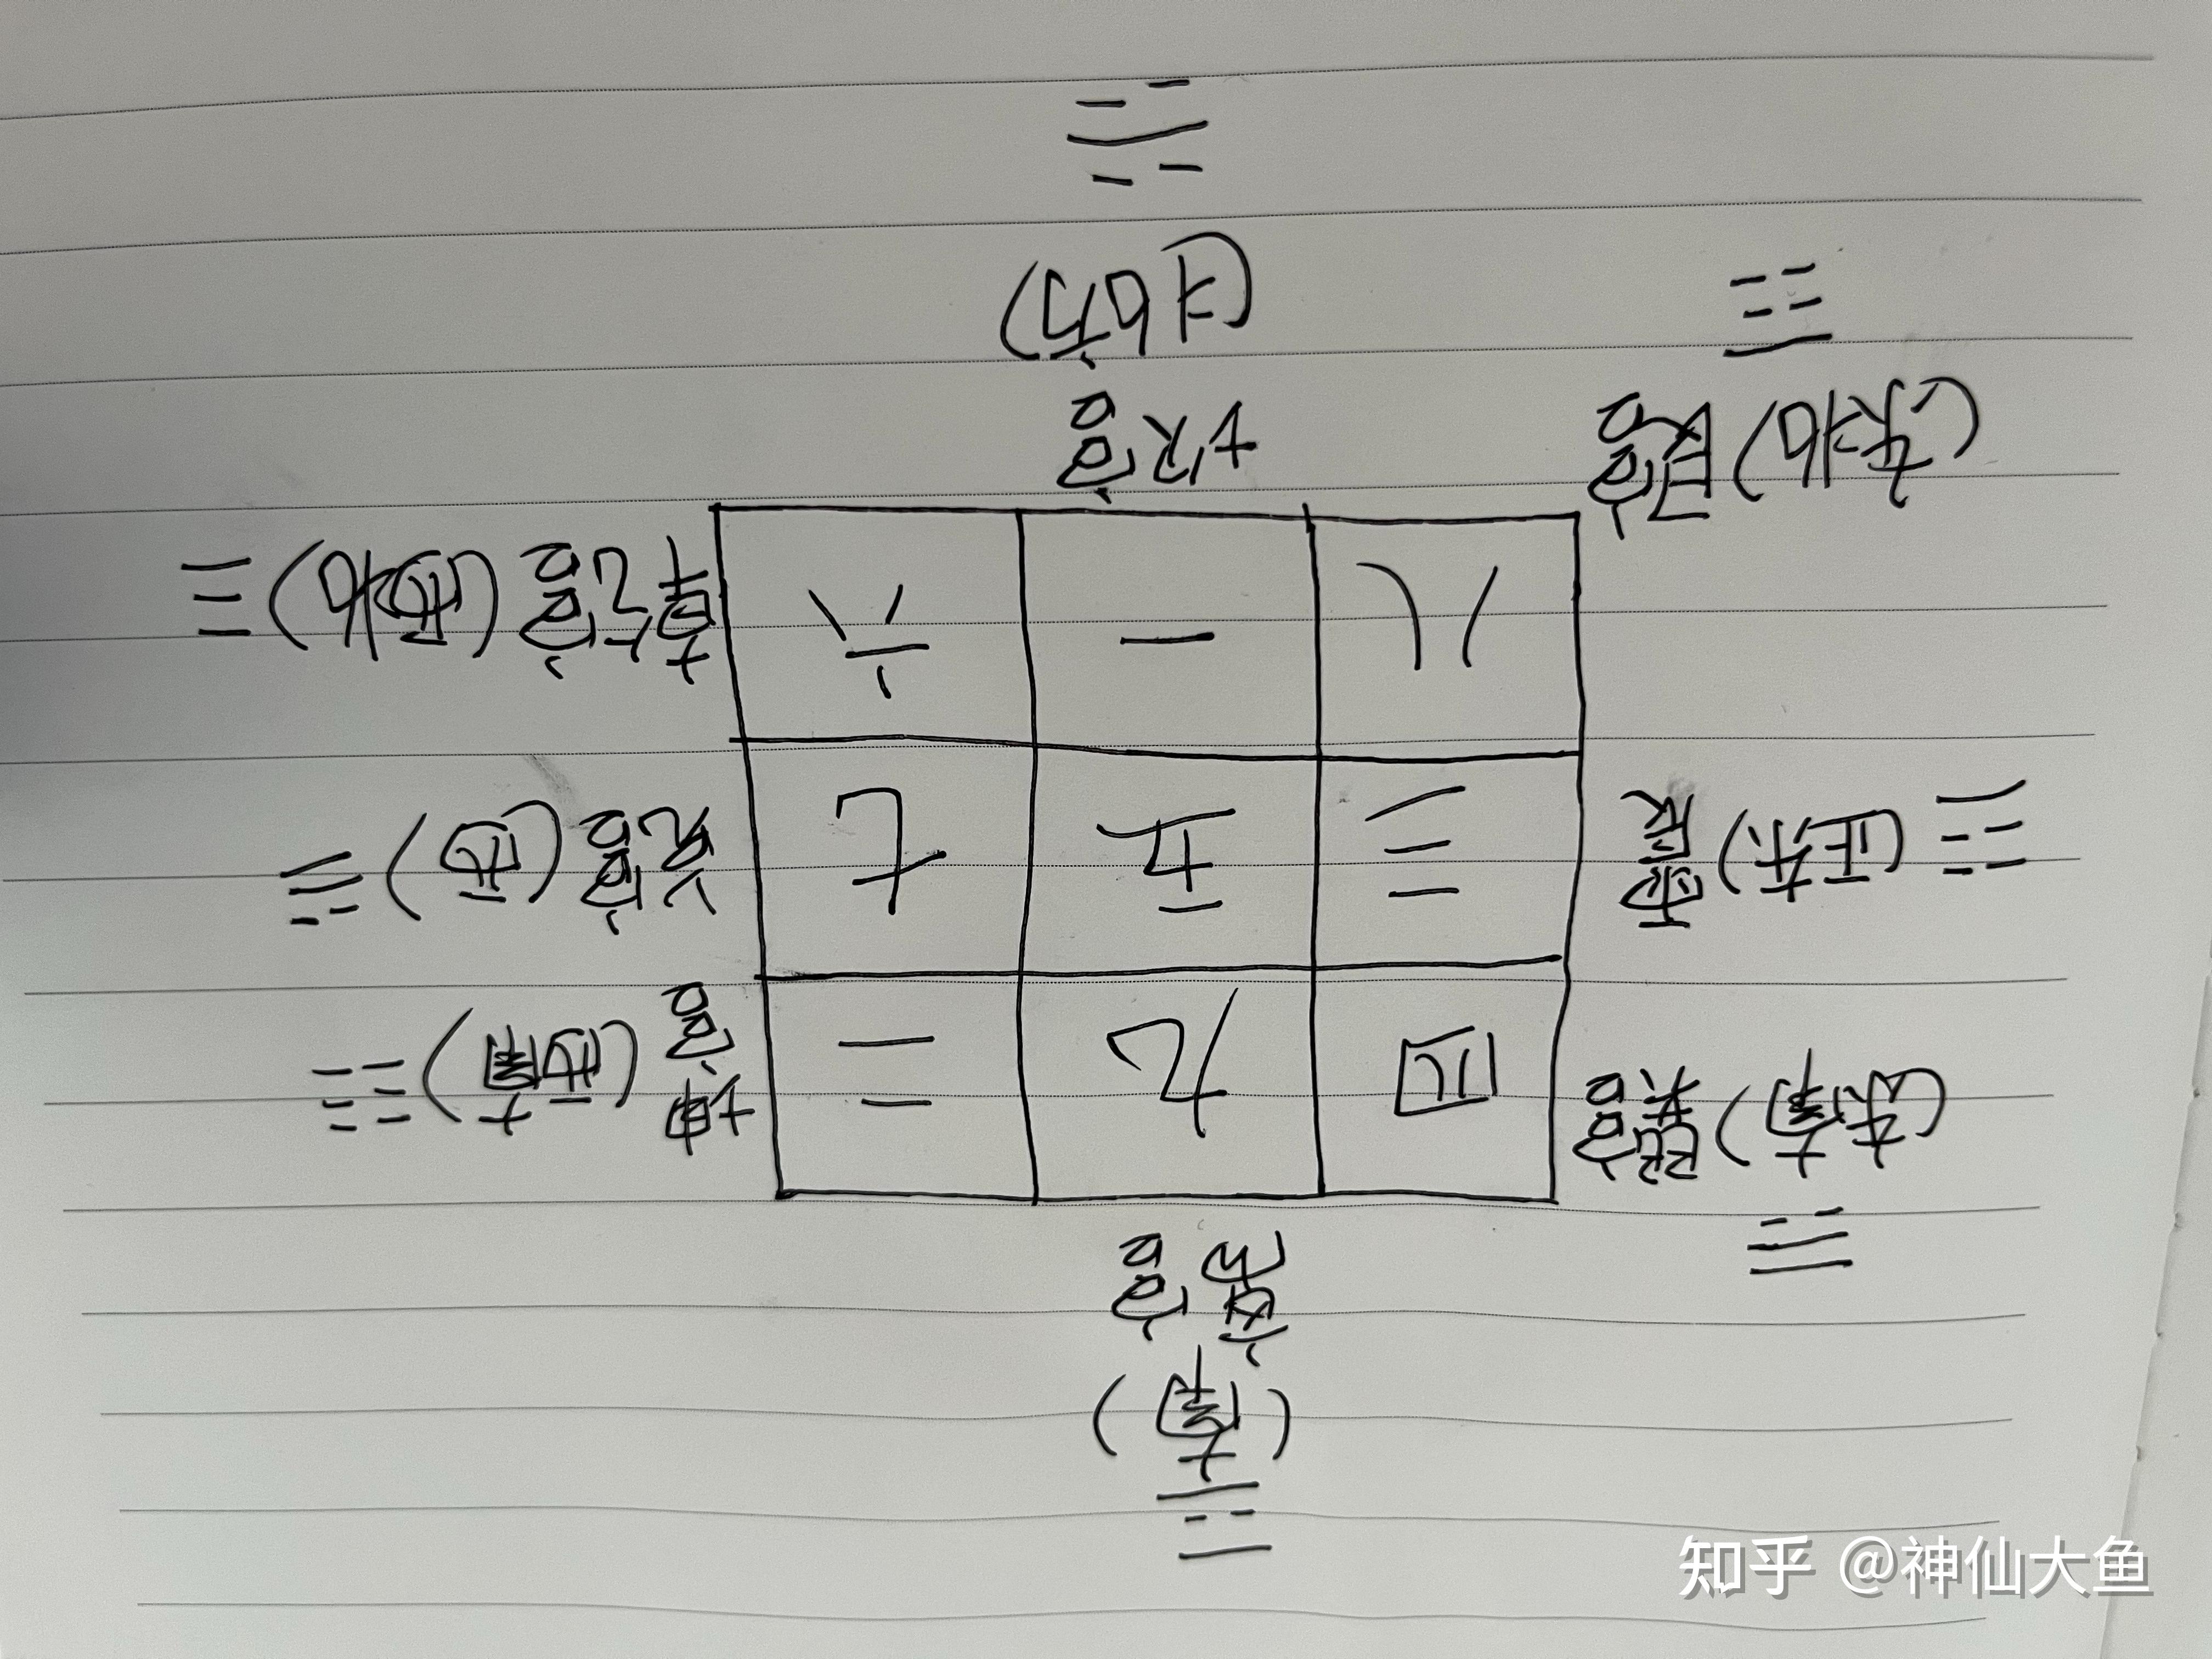 (南)
离宫
(东南) 巽宫
四 九 二
坤宫 (西南)
(正东) 震
三 五 七
兑宫 (西)
八 一 六
乾宫 (西北)
(东北) 艮宫
坎宫
(北方)
知乎 @神仙大鱼